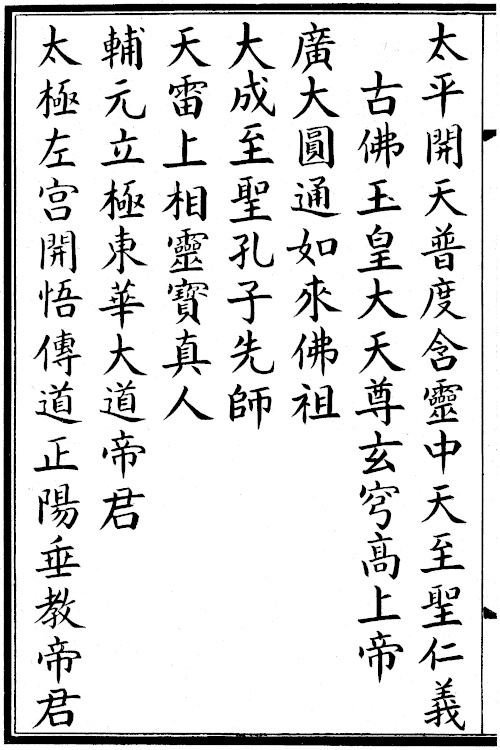 太平開天普度含靈中天至聖仁義
古佛玉皇大天尊玄穹高上帝
廣大圓通如來佛祖
大成至聖孔子先師
天雷上相靈寶真人
輔元立極東華大道帝君
太極左宮開悟傳道正陽垂教帝君